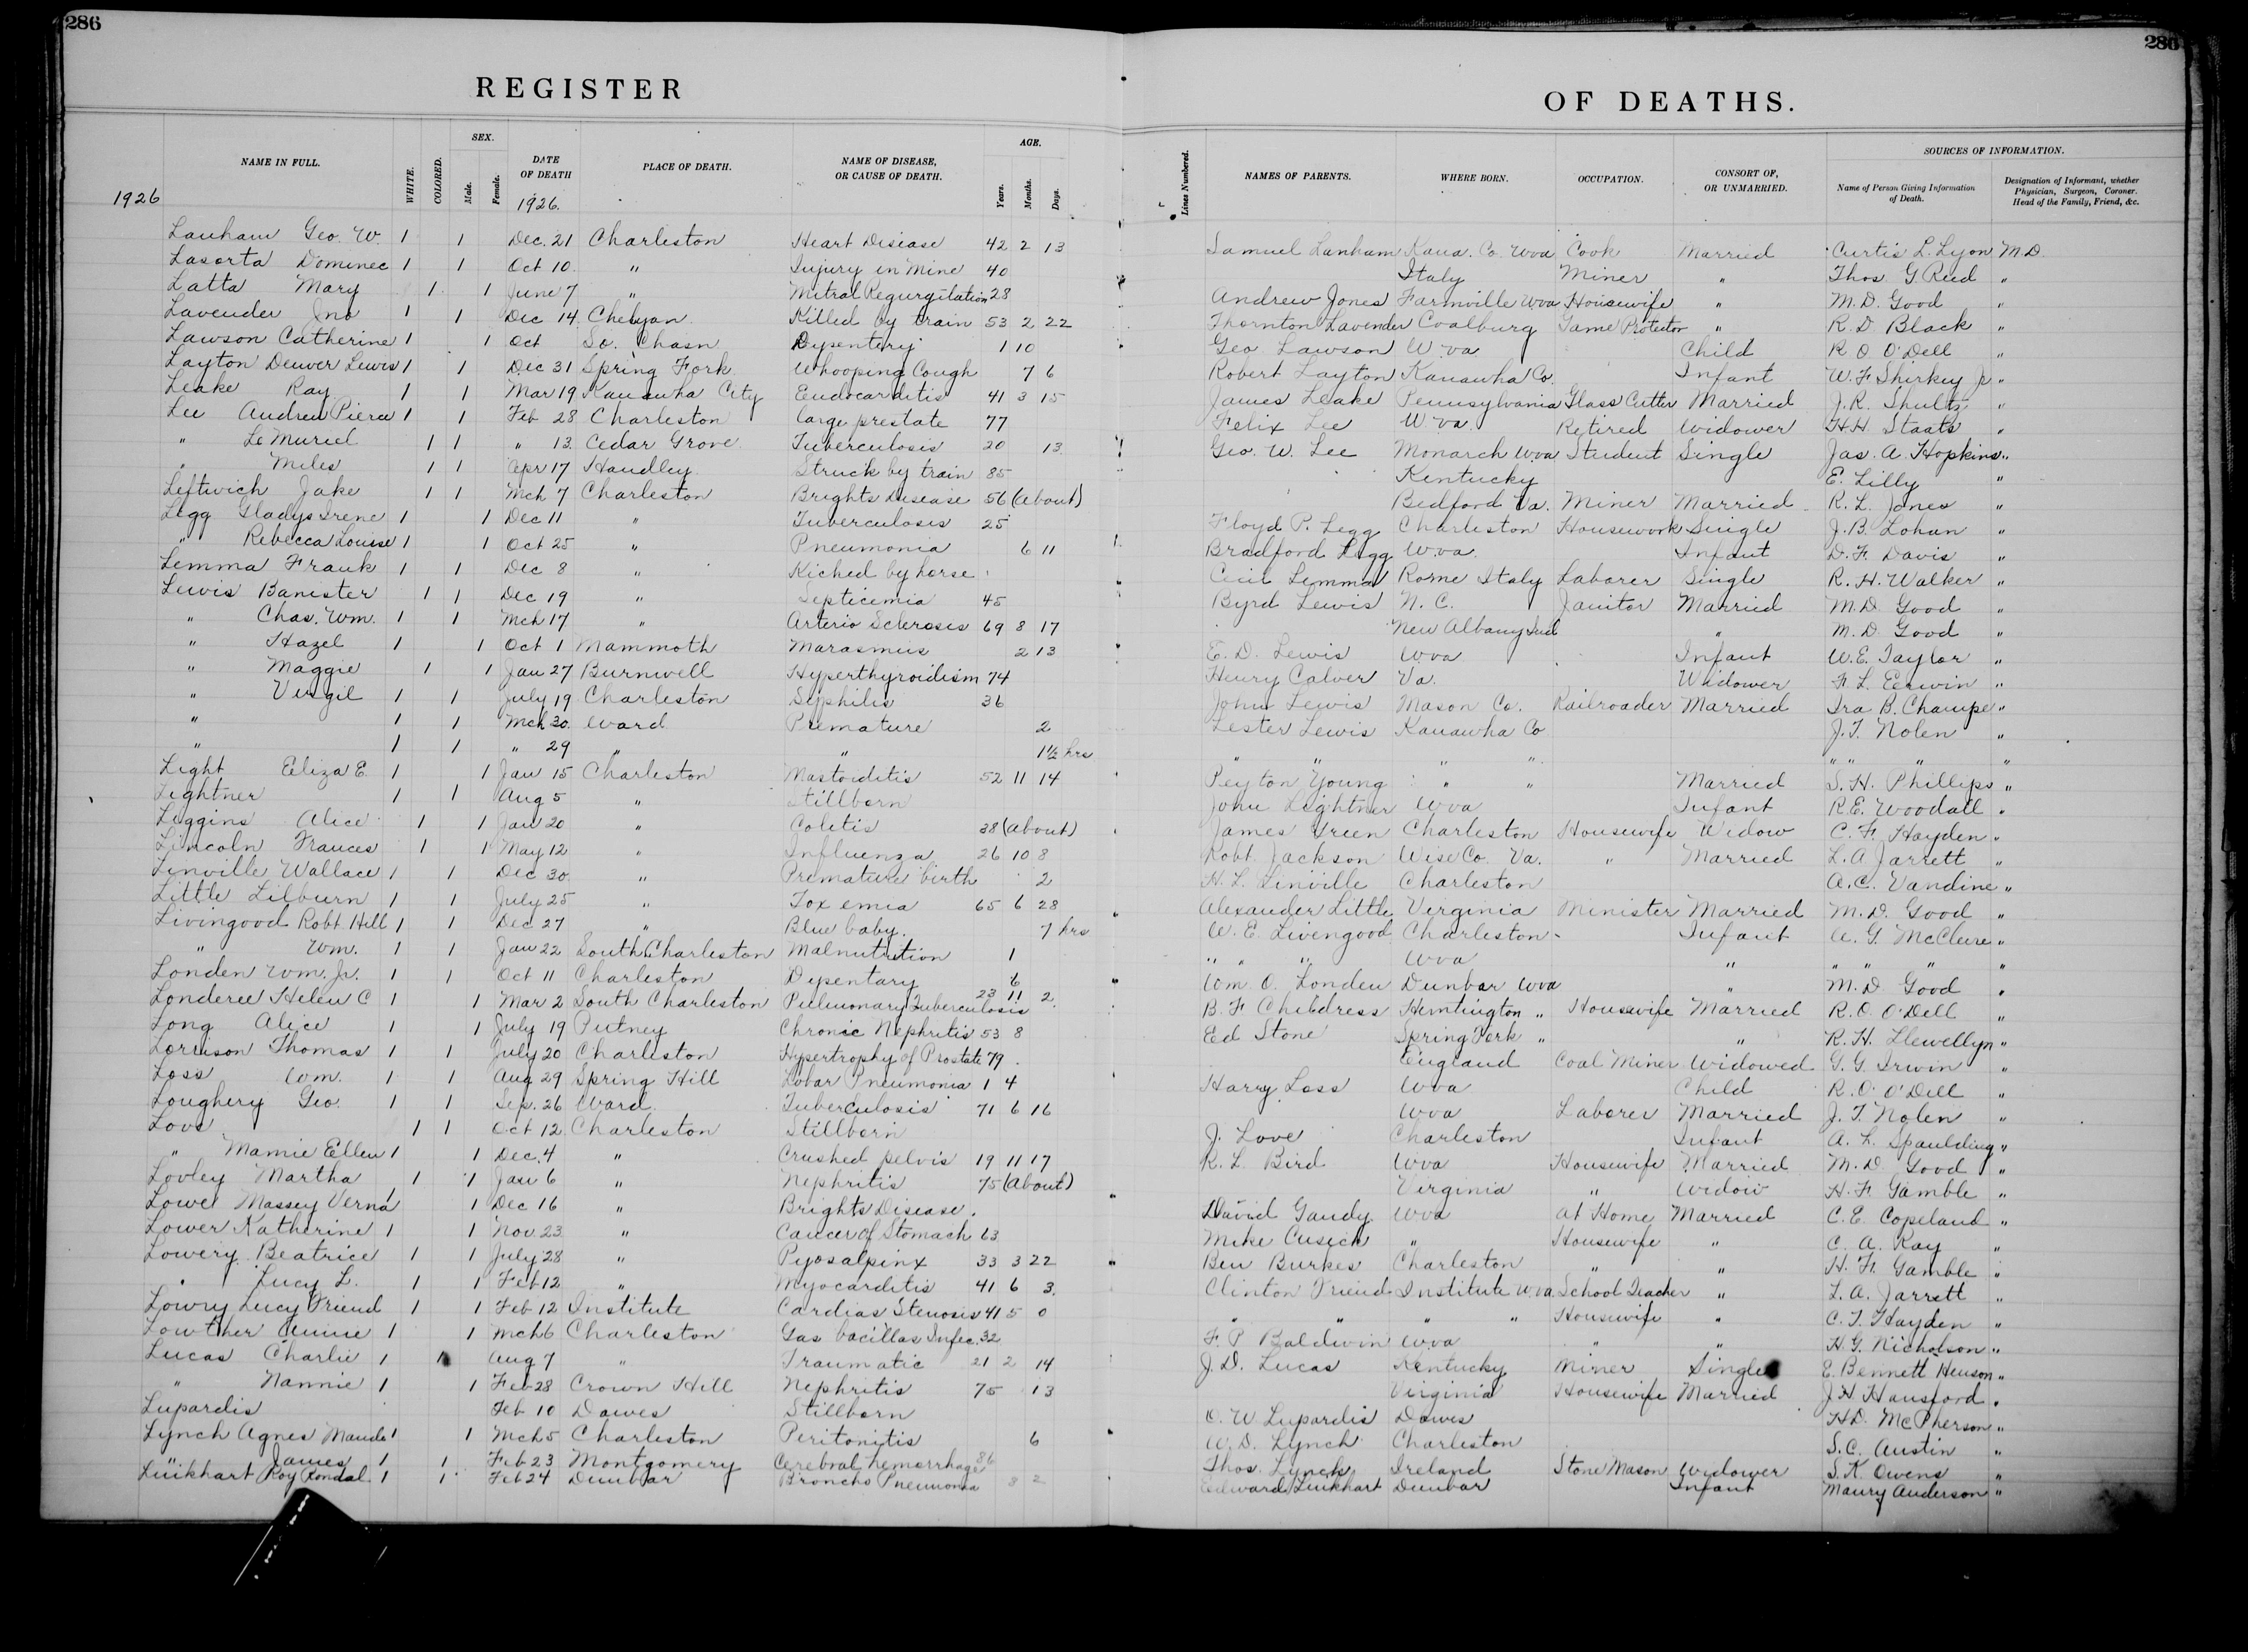 286
286
REGISTER OF DEATHS.
NAME IN FULL. WHITE. COLORED. SEX. Male. Female. DATE OF DEATH PLACE OF DEATH. NAME OF DISEASE, OR CAUSE OF DEATH. AGE. Years. Months. Days. Lines Numbered. NAMES OF PARENTS. WHERE BORN. OCCUPATION. CONSORT OF, OR UNMARRIED. SOURCES OF INFORMATION. Name of Person Giving Information of Death. Designation of Informant, whether Physician, Surgeon, Coroner. Head of the Family, Friend, &c.
1926 1926.
Lanham Geo. W. 1 1 Dec. 21 Charleston Heart Disease 42 2 13 Samuel Lanham Kana. Co. Wva Cook Married Curtis L. Lyon M.D.
Lasorta Dominec 1 1 Oct 10. " Injury in Mine 40 Italy Miner " Thos G Reed "
Latta Mary 1 1 June 7 " Mitral Regurgitation 28 Andrew Jones Farmville Wva Housewife " M.D. Good "
Lavender Jno 1 1 Dec 14. Chelyan Killed by train 53 2 22 Thornton Lavender Coalburg Game Protector " R. D Black "
Lawson Catherine 1 1 Oct So. Chasn Dysentery 1 10 Geo Lawson W va Child R O O'Dell "
Layton Denver Lewis 1 1 Dec 31 Spring Fork Whooping Cough 7 6 Robert Layton Kanawha Co. Infant W. F Shirkey Jr "
Leake Ray 1 1 Mar 19 Kanawha City Endocarditis 41 3 15 James Leake Pennsylvania Glass Cutter Married J. R. Shultz "
Lee Andrew Pierce 1 1 Feb 28 Charleston large prestate 77 Felix Lee W va Retired Widower H H Staats "
" Le Muriel 1 1 " 13 Cedar Grove Tuberculosis 20 13 Geo. W. Lee Monarch Wva Student Single Jas. A. Hopkins "
" Miles 1 1 Apr 17 Handley Struck by train 85 Kentucky E. Lilly "
Leftwich Jake 1 1 Mch 7 Charleston Brights Disease 56 (about) Bedford Va. Miner Married R. L. Jones "
Legg Gladys Irene 1 1 Dec 11 " Tuberculosis 25 Floyd P. Legg Charleston Housework Single J. B. Lohan "
" Rebecca Louise 1 1 Oct 25 " Pneumonia 6 11 Bradford Legg Wva. Infant D. F. Davis "
Lemma Frank 1 1 Dec 8 " Kicked by horse Cicil Lemma Rome Italy Laborer Single R. H. Walker "
Lewis Banister 1 1 Dec 19 " Septicemia 45 Byrd Lewis N. C. Janitor Married M. D. Good "
" Chas. Wm. 1 1 Mch 17 " Arterio Sclerosis 69 8 17 New Albany Ind " M. D. Good "
" Hazel 1 1 Oct 1 Mammoth Marasmus 2 13 E. D. Lewis Wva Infant W. E. Taylor "
" Maggie 1 1 Jan 27 Burnwell Hyperthyroidism 74 Henry Calver Va. Widower F. L. Eerwin "
" Virgil 1 1 July 19 Charleston Syphilis 36 John Lewis Mason Co. Railroader Married Ira B. Champe "
" 1 1 Mch 30. Ward Premature 2 Lester Lewis Kanawha Co J. T. Nolen "
" 1 1 " 29 " " 1½ hrs " " " " " " " "
Light Eliza E. 1 1 Jan 15 Charleston Mastoiditis 52 11 14 Peyton Young " " Married S. H. Phillips "
Lightner 1 1 Aug 5 " Stillborn John Lightner Wva Infant R.E. Woodall "
Liggins Alice 1 1 Jan 20 " Coletis 38 (about) James Green Charleston Housewife Widow C. F. Hayden "
Lincoln Frances 1 1 May 12 " Influenza 26 10 8 Robt. Jackson Wise Co. Va. " Married L. A Jarrett "
Linville Wallace 1 1 Dec 30 " Premature birth 2 H. L. Linville Charleston A. C. Vandine "
Little Lilburn 1 1 July 25 " Toxemia 65 6 28 Alexander Little Virginia Minister Married M. D. Good "
Livingood Robt Hill 1 1 Dec 27 " Blue baby. 7 hrs W. E. Livengood Charleston Infant A. G. McClure "
" Wm. 1 1 Jan 22 South Charleston Malnutrition 1 " " " Wva " " " " "
Londen Wm. Jr. 1 1 Oct 11 Charleston Dysentary 6 Wm. O. Londen Dunbar Wva " M. D Good "
Londeree Helen C 1 1 Mar 2 South Charleston Pulmonary Tuberculosis 23 11 2 B. F Childress Huntington " Housewife Married R. O. O'Dell "
Long Alice 1 1 July 19 Putney Chronic Nephritis 53 8 Ed Stone Spring Fork " " R. H. Llewellyn "
Lorrison Thomas 1 1 July 20 Charleston Hypertrophy of Prostate 79 England Coal Miner Widowed G. G. Irwin "
Loss Wm. 1 1 Aug 29 Spring Hill Lobar Pneumonia 1 4 Harry Loss Wva Child R. O. O'Dell "
Loughery Geo. 1 1 Sep. 26 Ward Tuberculosis 71 6 16 Wva Laborer Married J. T. Nolen "
Love 1 1 Oct 12 Charleston Stillborn J. Love Charleston Infant A. L. Spaulding "
" Mamie Ellen 1 1 Dec. 4 " Crushed pelvis 19 11 17 R. L. Bird Wva Housewife Married M. D Good "
Lovley Martha 1 1 Jan 6 " Nephritis 75 (about) Virginia " Widow H. F. Gamble "
Lowe Massey Verna 1 1 Dec 16 " Brights Disease. David Gandy Wva At Home Married C. E. Copeland "
Lower Katherine 1 1 Nov 23 " Cancer of Stomach 63 Mike Cusick " Housewife " C. A. Ray "
Lowery Beatrice 1 1 July 28 " Pyosalpinx 33 3 22 Ben Burkes Charleston " " H. F. Gamble "
" Lucy L. 1 1 Feb 12 " Myocarditis 41 6 3 Clinton Friend Institute Wva School Teacher " L. A. Jarrett "
Lowry Lucy Friend 1 1 Feb 12 Institute Cardias Stenosis 41 5 0 " " " " Housewife " C. T. Hayden "
Lowther Annie 1 1 Mch 6 Charleston Gas bacillas Infec. 32 F. P Baldwin Wva " " H. G. Nicholson "
Lucas Charlie 1 1 Aug 7 " Traumatic 21 2 14 J. D. Lucas Kentucky Miner Single E. Bennett Henson "
" Nannie 1 1 Feb 28 Crown Hill Nephritis 75 13 Virginia Housewife Married J H Hansford "
Lupardis Feb 10 Dawes Stillborn O. W. Lupardis Dawes H D. McPherson "
Lynch Agnes Maude 1 1 Mch 5 Charleston Peritonitis 6 W. D. Lynch Charleston S. C. Austin "
" James 1 1 Feb 23 Montgomery Cerebral hemorrhage 86 Thos. Lynch Ireland Stone Mason Widower S. K. Owens "
Linkhart Roy Rondal 1 1 Feb 24 Dunbar Broncho Pneumonia 3 2 Edward Linkhart Dunbar Infant Maury Anderson "